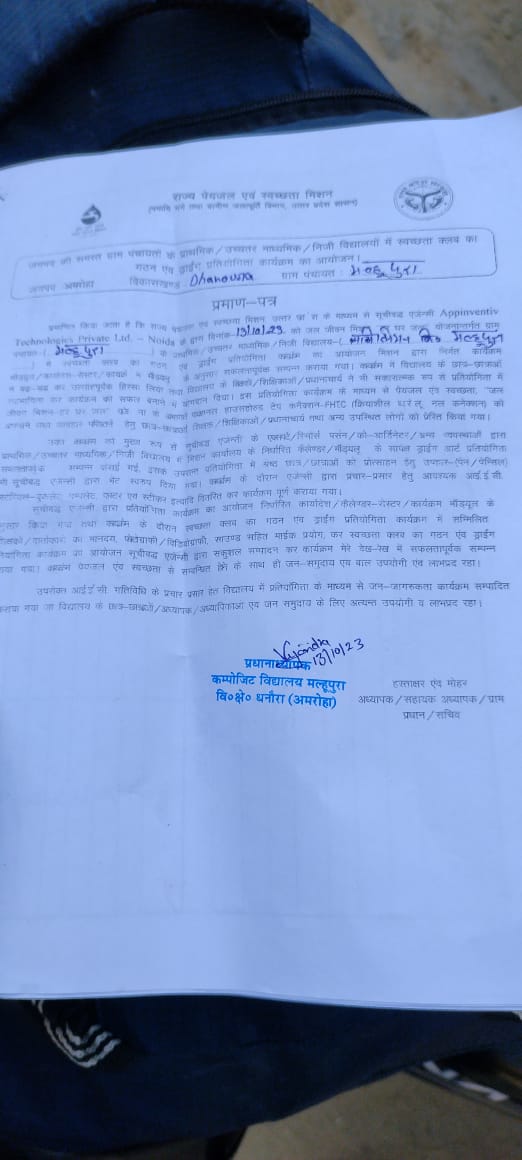 राज्य पेयजल एवं स्वच्छता मिशन
(नमामि गंगे तथा ग्रामीण जलापूर्ति विभाग, उत्तर प्रदेश शासन)
जनपद की समस्त ग्राम पंचायतों के प्राथमिक/उच्चतर माध्यमिक/निजी विद्यालयों में स्वच्छता क्लब का
गठन एंव ड्राईंग प्रतियोगिता कार्यक्रम का आयोजन।
जनपद अमरोहा विकासखण्ड Dhanoura ग्राम पंचायत: मल्हूपुरा
प्रमाण-पत्र
प्रमाणित किया जाता है कि राज्य पेयजल एवं स्वच्छता मिशन के माध्यम से सूचीबद्ध एजेन्सी Appinventiv
Technologies Private Ltd. – Noida के द्वारा दिनांक 13/10/23 को जल जीवन मिशन घर जल योजनान्तर्गत ग्राम
के प्राथमिक/उच्चतर माध्यमिक/निजी विद्यालय
में स्वच्छता क्लब का गठन एवं ड्राईंग प्रतियोगिता कार्यक्रम का आयोजन मिशन द्वारा निर्गत कार्यक्रम
के अनुसार सफलतापूर्वक सम्पन्न कराया गया। कार्यक्रम में विद्यालय के छात्र-छात्राओं
ने बढ़-चढ़ कर उत्साहपूर्वक हिस्सा लिया तथा विद्यालय के शिक्षकों/शिक्षिकाओं/प्रधानाचार्य ने भी सकारात्मक रूप से प्रतियोगिता में
कर कार्यक्रम को सफल बनाने में योगदान दिया। इस प्रतियोगिता कार्यक्रम के माध्यम से पेयजल एंव स्वच्छता, "जल
जीवन मिशन-हर घर जल" हाउसहोल्ड टेप कनेक्शन-FHTC (क्रियाशील नल कनेक्शन) को
हेतु छात्र-छात्राओं शिक्षक/शिक्षिकाओं/प्रधानाचार्य तथा अन्य उपस्थित लोगों को प्रेरित किया गया।
उक्त कार्यक्रम को मुख्य रूप से सूचीबद्ध एजेन्सी के एक्सपर्ट/रिसोर्स पर्सन/को-आर्डिनेटर/अन्य व्यवस्थाओं द्वारा
प्राथमिक/उच्चतर माध्यमिक/निजी विद्यालय में मिशन कार्यालय के निर्धारित कैलेण्डर/मॉडयूल के सापेक्ष ड्राईंग आर्ट प्रतियोगिता
सम्पन्न कराई गई, इसके उपरान्त प्रतियोगिता में छात्र/छात्राओं को प्रोत्साहन हेतु उपहार-(पेन/पेन्सिल)
सूचीबद्ध एजेन्सी द्वारा भेंट स्वरूप दिया गया। कार्यक्रम के दौरान एजेन्सी द्वारा प्रचार-प्रसार हेतु आवश्यक आई.ई.सी.
पोस्टर एवं स्टीकर इत्यादि वितरित कर कार्यक्रम पूर्ण कराया गया।
सूचीबद्ध एजेन्सी द्वारा प्रतियोगिता कार्यक्रम का आयोजन निर्धारित कार्यादेश/कैलेण्डर-रोस्टर/कार्यक्रम मॉडयूल के
किया गया तथा कार्यक्रम के दौरान स्वच्छता क्लब का गठन एंव ड्राईंग प्रतियोगिता कार्यक्रम में सम्मिलित
का मानदेय, फोटोग्राफी/विडियोग्राफी, साउण्ड सहित माईक प्रयोग, कर स्वच्छता क्लब का गठन एंव ड्राईंग
कार्यक्रम का आयोजन सूचीबद्ध एजेन्सी द्वारा सकुशल सम्पादन कर कार्यक्रम मेरे देख-रेख में सफलतापूर्वक सम्पन्न
गया। कार्यक्रम पेयजल एंव स्वच्छता से सम्बन्धित होने के साथ ही जन-समुदाय एंव बाल उपयोगी एंव लाभप्रद रहा।
उपरोक्त आई.ई.सी. गतिविधि के प्रचार प्रसार हेतु विद्यालय में प्रतियोगिता के माध्यम से जन-जागरुकता कार्यक्रम सम्पादित
कराया गया जो विद्यालय के छात्र-छात्राओं/अध्यापक/अध्यापिकाओं एंव जन समुदाय के लिए अत्यन्त उपयोगी व लाभप्रद रहा।
13/10/23
प्रधानाध्यापक
कम्पोजिट विद्यालय मल्हूपुरा
वि०क्षे० धनौरा (अमरोहा)
हस्ताक्षर एंव मोहर
अध्यापक/सहायक अध्यापक/ग्राम
प्रधान/सचिव